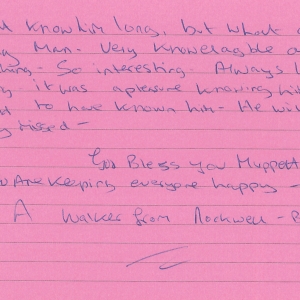 know him long, but what a
Man - Very Knowelagable a
- So interesting - Always l
it was a pleasure knowing hi
to have known him - He wi
missed -
God Bless you Muppet
Are Keeping everyone happy -
A Walker from Rockwell -